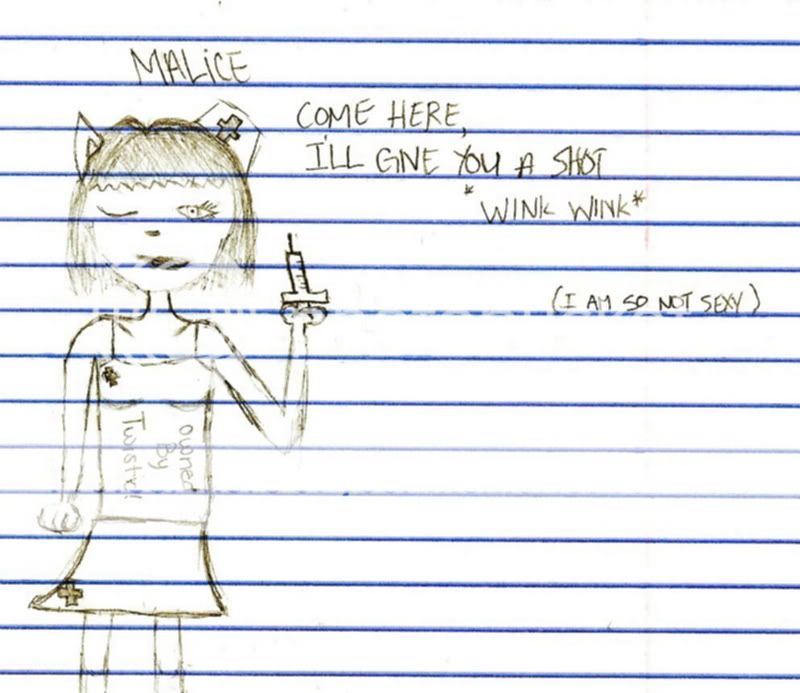 MALiCE
COME HERE,
I'LL GIVE YOU A SHOT
*WINK WINK*
(I AM SO NOT SEXY)
owned
By
Twistid!!